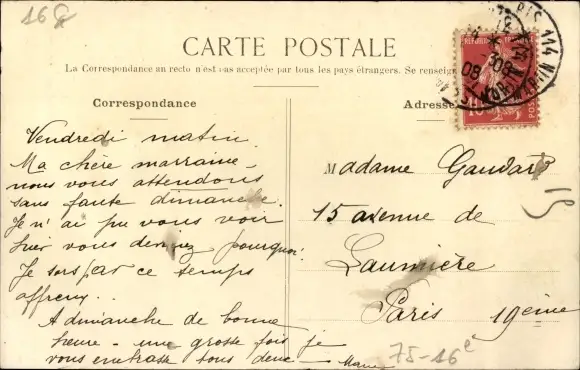 16e
CARTE POSTALE
La Correspondance au recto n'est pas acceptée par tous les pays étrangers. Se renseign
Correspondance
Adresse
Vendredi matin.
Ma chère marraine
nous vous attendons
sans faute dimanche.
Je n'ai pu vous voir
hier vous devinez pourquoi!
Je sors par ce temps
affreux..
A dimanche de bonne
heure - une grosse fois je
vous embrasse tous deux -
Madame Gaudard
15 avenue de
Laumière
Paris 19eme
75-16e
PARIS 114
08
10
POSTES